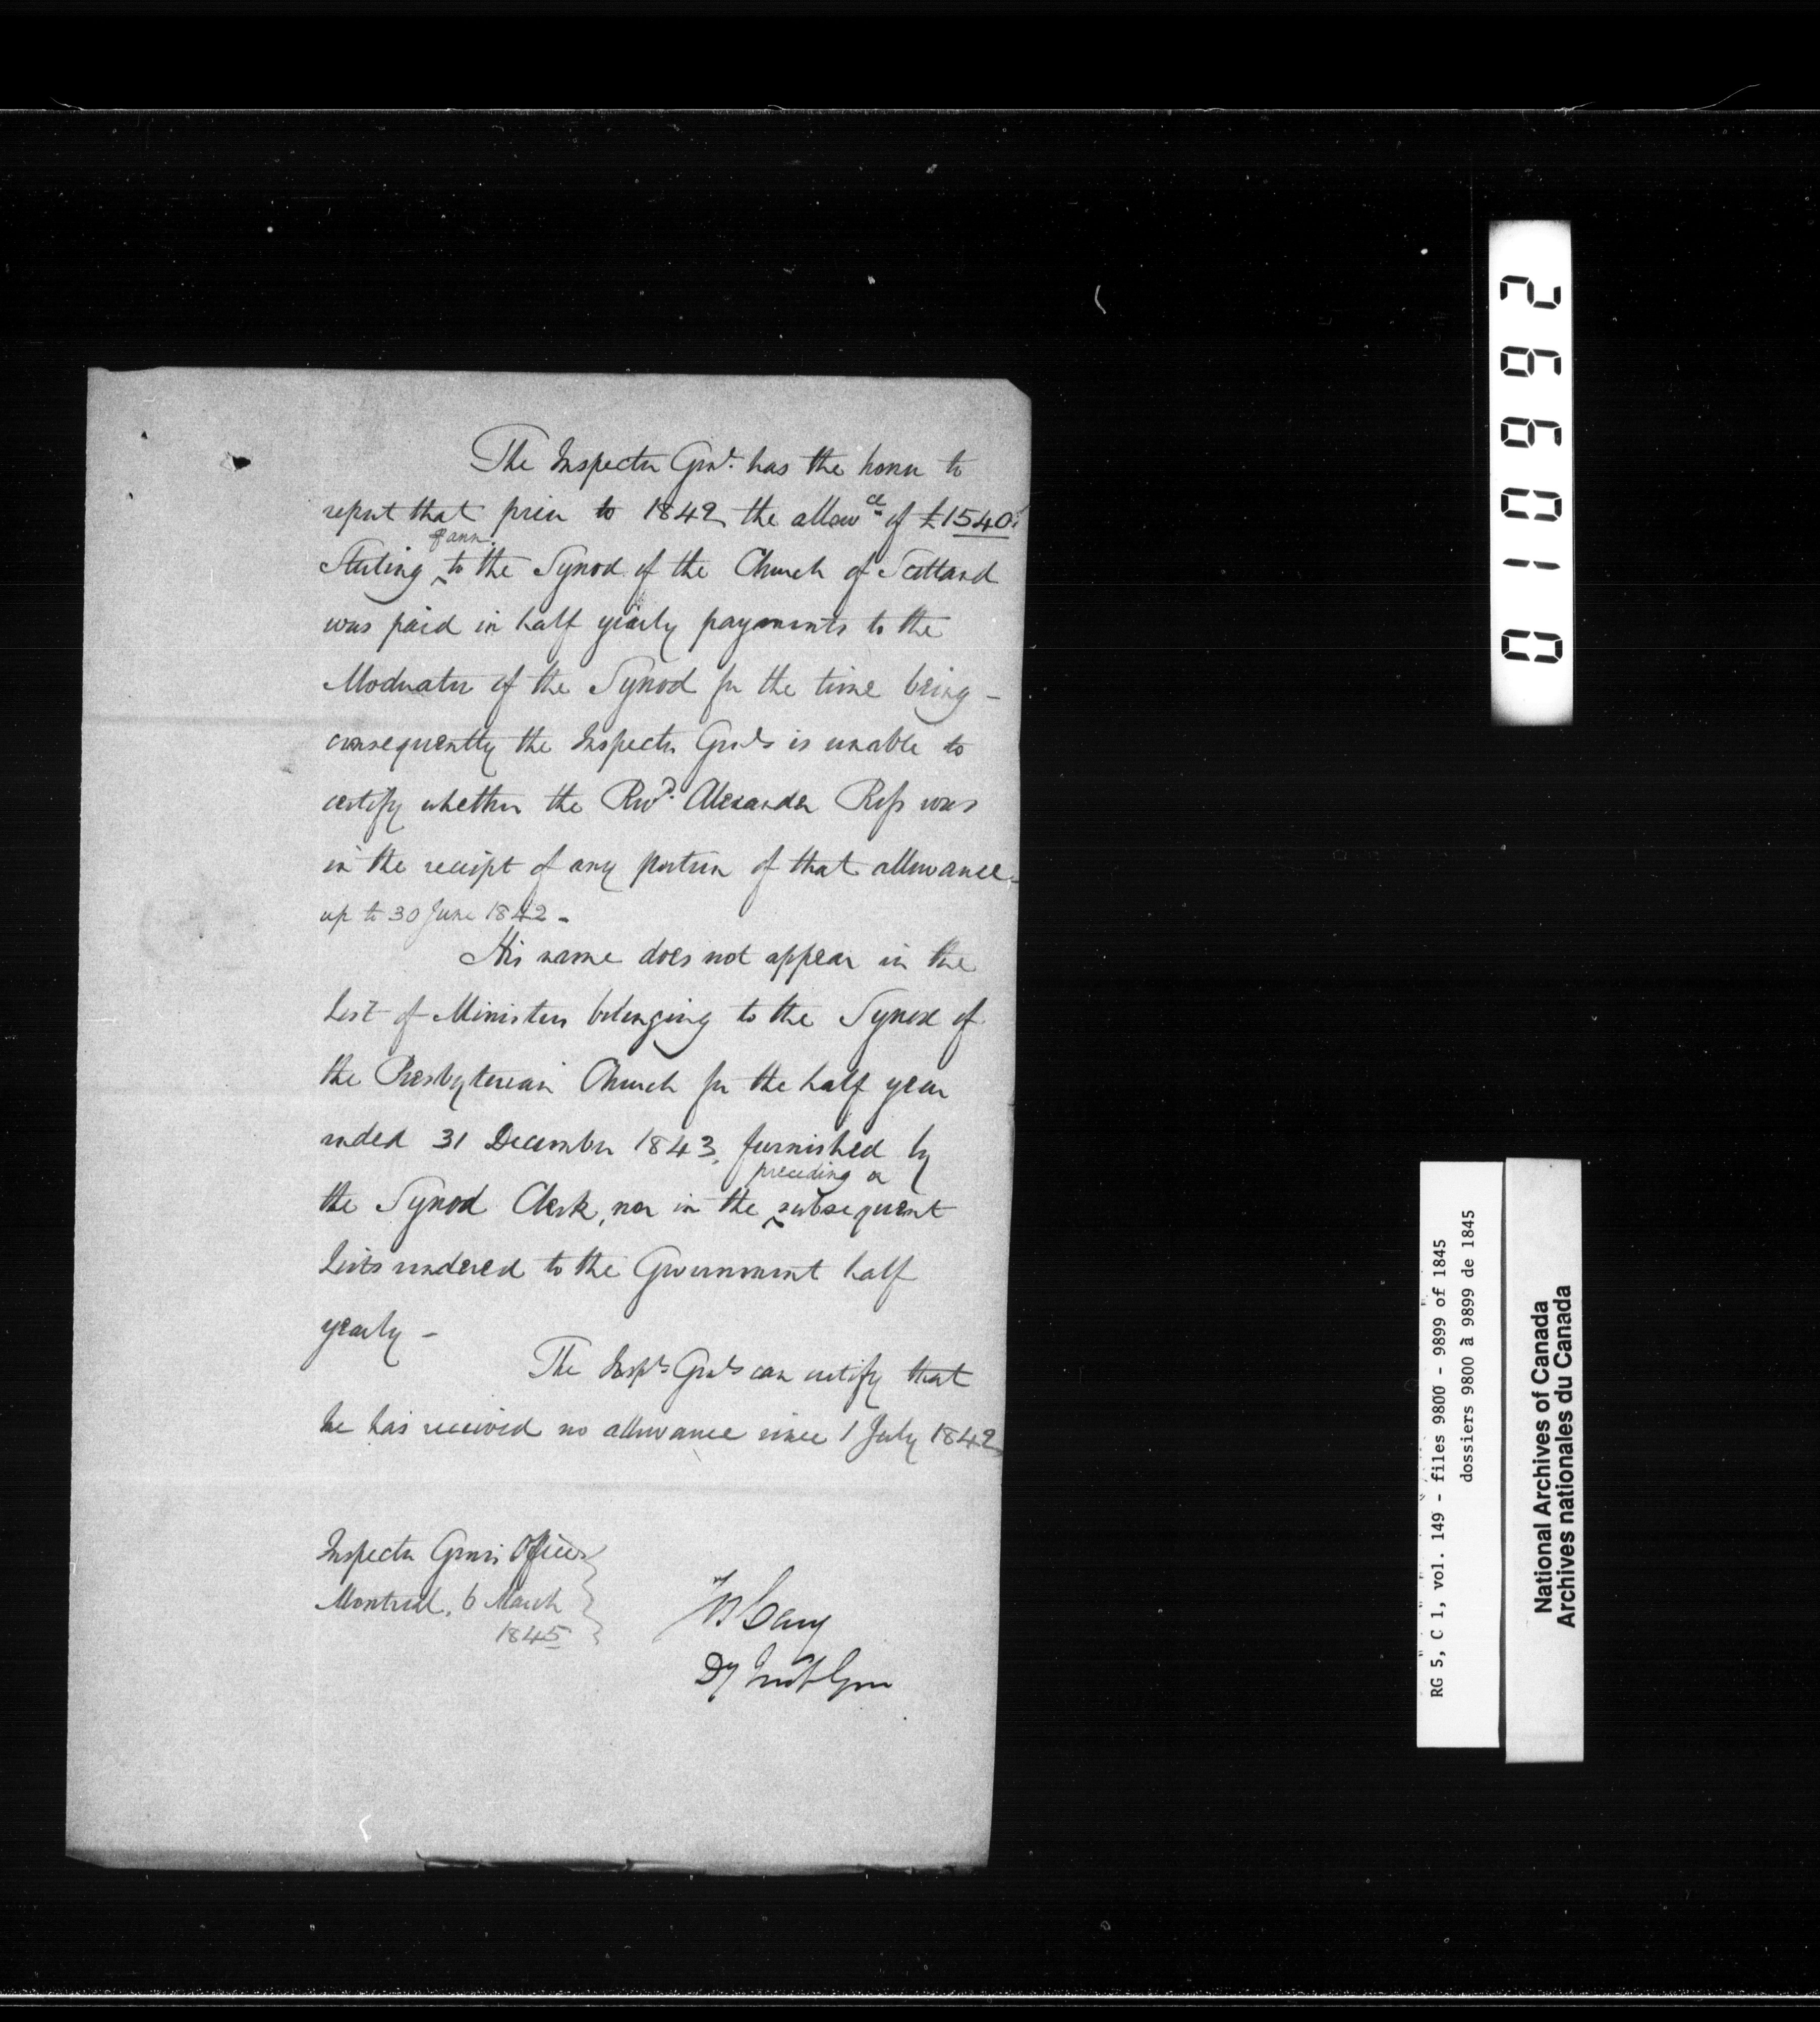 The Inspector Genl. has the honor to
report that prior to 1842 the allowce of £1540.
⅌ ann.
Sterling ‸ to the Synod of the Church of Scotland
was paid in half yearly payments to the
Moderator of the Synod for the time being –
consequently the Inspectr Genl is unable to
certify whether the Revd. Alexander Ross was
in the receipt of any portion of that allowance
up to 30 June 1842 –
His name does not appear in the
List of Ministers belonging to the Synod of
the Presbyterian Church for the half year
ended 31 December 1843, furnished by
preceding or
the Synod Clerk, nor in the ‸ subsequent
Lists rendered to the Government half
yearly –
The Inspr Genl can certify that
he has received no allowance since 1 July 1842
Inspector Genls Office
Montreal, 6 March
1845
Cary
Dy Inspt Gen
010662
RG 5, C 1, vol. 149 - files 9800 - 9899 of 1845
dossiers 9800 à 9899 de 1845
National Archives of Canada
Archives nationales du Canada